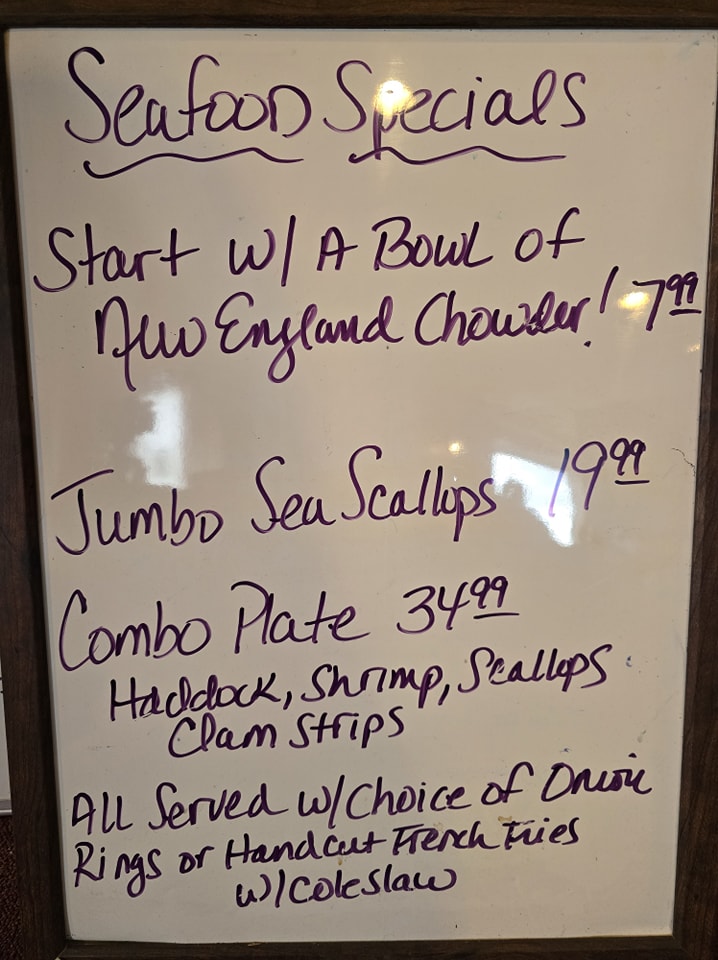 Seafood Specials
Start w/ A Bowl of
New England Chowder! 7.99
Jumbo Sea Scallops 19.99
Combo Plate 34.99
Haddock, Shrimp, Scallops
Clam Strips
All Served w/ Choice of Onion
Rings or Handcut French Fries
w/ Coleslaw